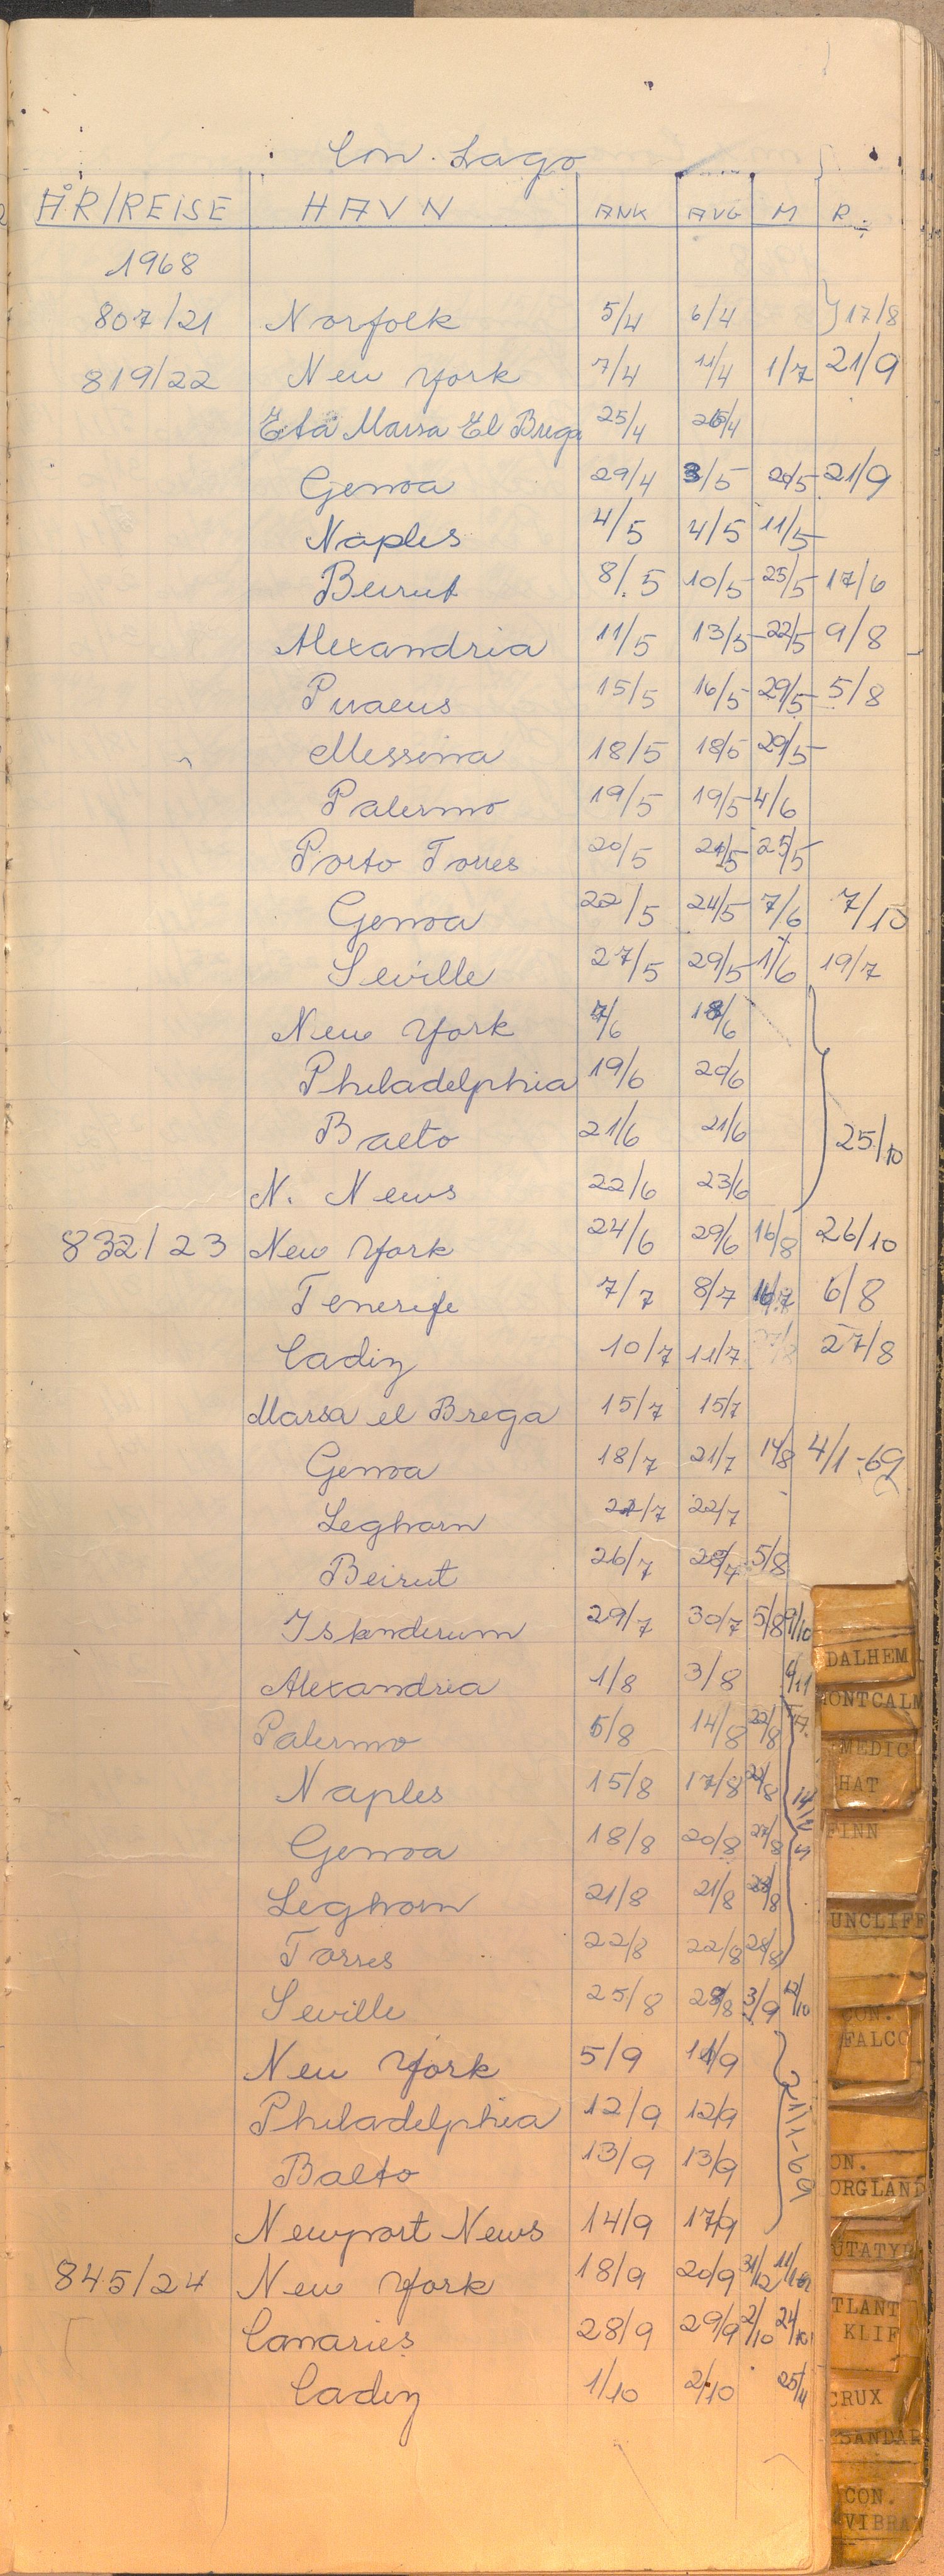 Con. Lago
ÅR/REISE HAVN ANK AVG M R.
1968
807/21 Norfolk 5/4 6/4 17/8
819/22 New York 7/4 11/4 1/7 21/9
Eta Marsa El Brega 25/4 26/4
Genoa 29/4 3/5 20/5 21/9
Naples 4/5 4/5 11/5
Beirut 8/5 10/5 25/5 17/6
Alexandria 11/5 13/5 22/5 9/8
Piraeus 15/5 16/5 29/5 5/8
Messina 18/5 18/5 29/5
Palermo 19/5 19/5 4/6
Porto Torres 20/5 21/5 25/5
Genoa 22/5 24/5 7/6 7/10
Seville 27/5 29/5 1/6 19/7
New York 7/6 18/6
Philadelphia 19/6 20/6
Balto 21/6 21/6 25/10
N. News 22/6 23/6
832/23 New York 24/6 29/6 16/8 26/10
Tenerife 7/7 8/7 16/7 6/8
Cadiz 10/7 11/7 27/8
Marsa el Brega 15/7 15/7
Genoa 18/7 21/7 14/8 4/1-69
Leghorn 22/7 22/7
Beirut 26/7 28/7 5/8
Iskenderum 29/7 30/7 5/8 9/10
Alexandria 1/8 3/8
Palermo 5/8 14/8 22/8
Naples 15/8 17/8
Genoa 18/8 20/8 27/8
Leghorn 21/8 21/8 28/8
Torres 22/8 22/8 28/8
Seville 25/8 28/8 3/9 12/10
New York 5/9 11/9
Philadelphia 12/9 12/9 21/1-69
Balto 13/9 13/9
Newport News 14/9 17/9
845/24 New York 18/9 20/9 31/12
Canaries 28/9 29/9 2/10 24/10
Cadiz 1/10 2/10
DALHEM
MONTCALM
MEDIC
HAT
FINN
UNCLIFF
CON.
FALCO
ON.
ORGLAND
UTATY
TLANT
KLIF
CRUX
SANDAR
CON.
VIBRA